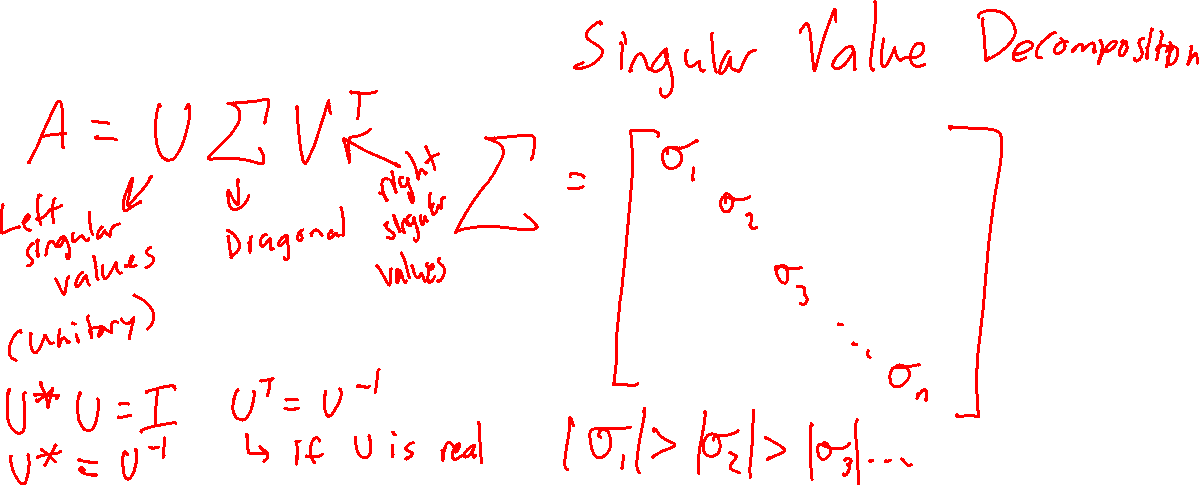 Singular Value Decomposition
A = U Σ V^T
Left singular values (unitary)
Diagonal
right singular values
Σ = [σ₁ σ₂ σ₃ ⋱ σₙ]
U* U = I
U* = U⁻¹
U^T = U⁻¹
↳ if U is real
|σ₁| > |σ₂| > |σ₃| ...